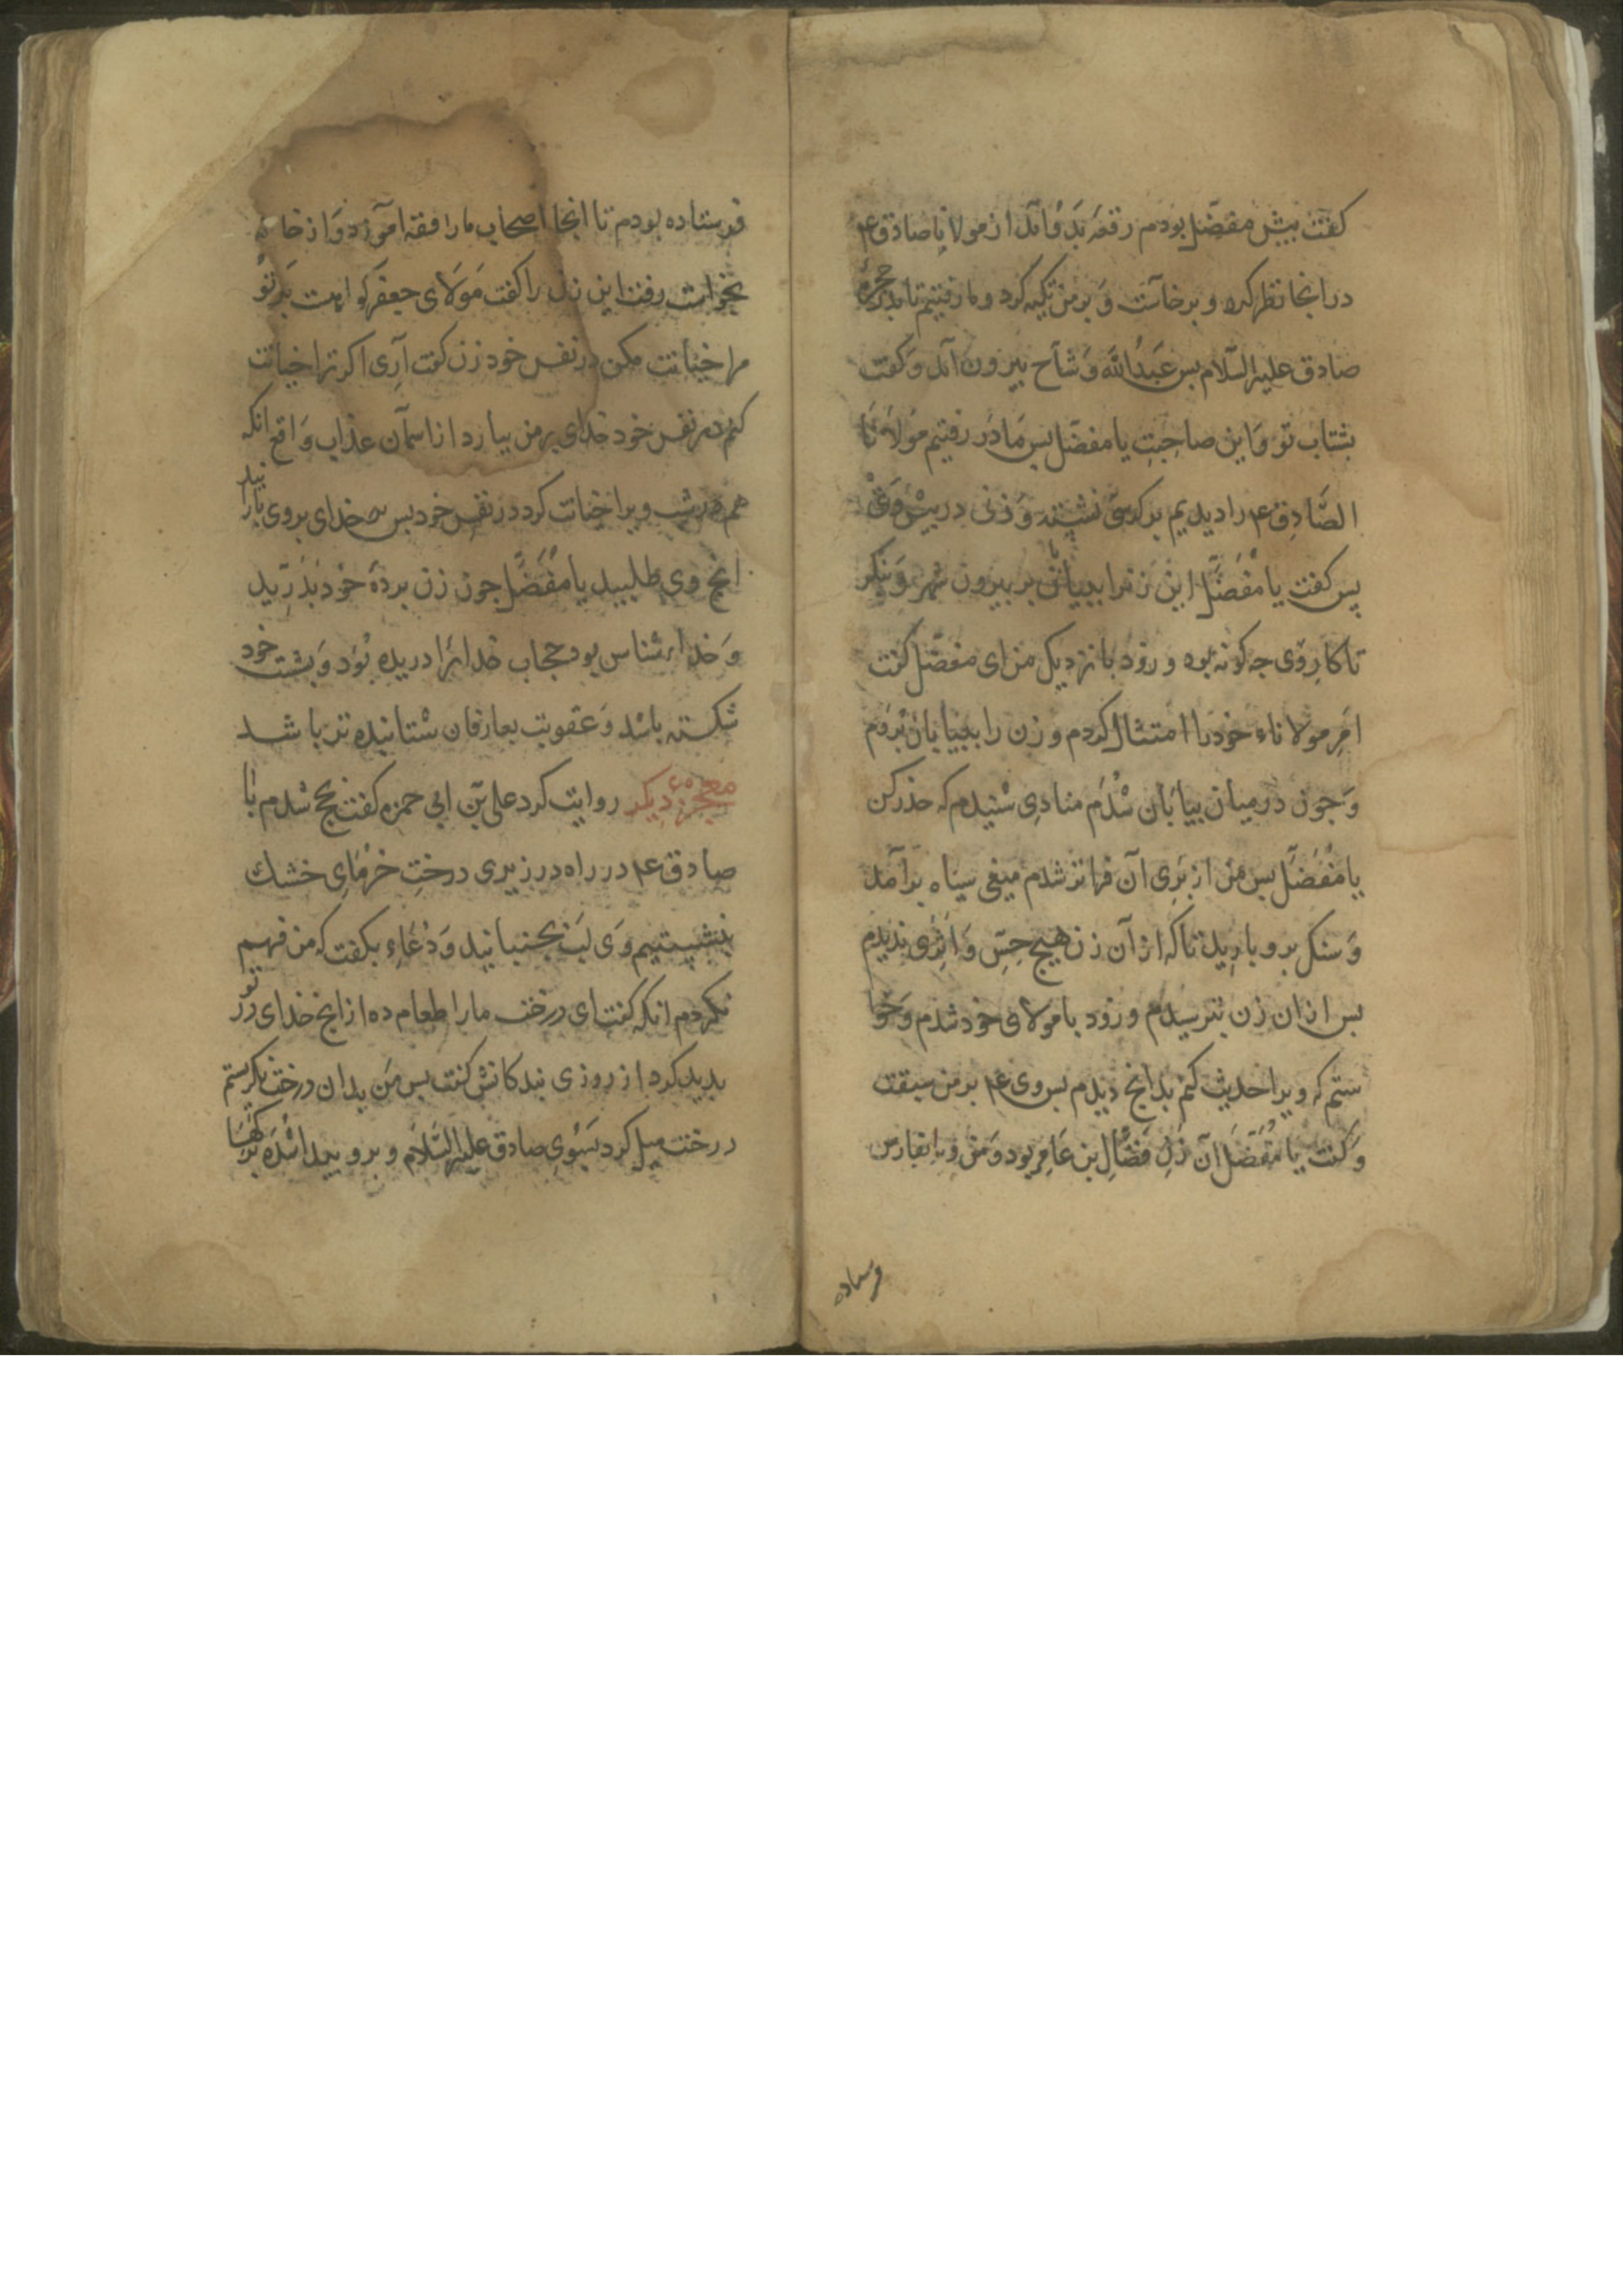 کفت بیش مفضّل بودم رقعهٔ بَدُو آمد از مولانا صادق ع
در انجا نظر کرد و برخاست وَ بر من تکیه کرد و ما رفتیم تا بدر حجرهٔ
صادق علیه السّلام بس عَبدُاللّه وَشاح بیرون آمد وَ کفت
بشتاب تو وَ این صاحِبتِ یا مفضّل بس ما در رفتیم مولانا
الصَّادِق ع را دیدیم بر کرسی نشسته وَ زنی در بیش وَیْ
پس کفت یا مُفَضَّل این زنرا ببیابان بر بیرون شهر وَ بنکر
تا کارِ وَی جه کونه بود و زود با نزدیک من ای مفضّل کفت
امَرِ مولاناء خود را امتثال کردم و زن را ببیابان بُردم
وَ جون در میان بیابان شُدم منادی شنیدم که حذر کن
یا مُفَضَّل بس من از بَرِی آن فراتر شدم میغی سیاه برآمد
وَ سنک برو بارید تا که از آن زن هیچ حِسّ وَ اَثری ندیدم
بس از ان زن بترسیدم و زود با مولای خود شدم وَ خوا
ستم که ویرا حدیث کنم بدانج دیدم بس وی ع بر من سبقت
وَ کفت یا مُفَضَّل آن زنِ فَضّالِ بن عَامِر بود وَ من ویرا بفارس
فرستاده
فرستاده بودم تا انجا اصحاب ما را فقه آموزد وَ از خانه
بخواست رفت این زن را کفت مَولای جعفر کواهست بَر تو
مرا خیانت مکن در نفس خود زن کفت آرِی اکر ترا خیانت
کنم در نفس خود خدای بر من ببارد از اسمآن عذاب وَاقع انکه
هم در شب ویرا خیانت کرد در نفس خود بس خدای بر وی ببارانید
انج وی طلبید یا مُفَضَّل جون زن بردهٔ خود بدَرِّید
وَ خدا را شناس بود حجاب خدایرا دریده بُوَد وَ بشت خود
شکسته باشد وَ عقوبت بعارفان شتابنده تر باشد
معجزهٔ دیکر روایت کرد علی بن ابی حمزه کفت بحج شدم با
صادق ع در راه در زیری درختِ خرمایِ خشک
بنشستیم وَی لب بجنبانید وَ دُعاءِ بکفت که من فهم
نکردم انکه کفت ای درخت ما را طعام ده از انج خدای در تو
بدید کرد از روزی بندکانش کفت بس مَن بدان درخت نکرستم
درخت میل کرد بسُوی صادق علیه السّلام و برو بیدا شده برکها